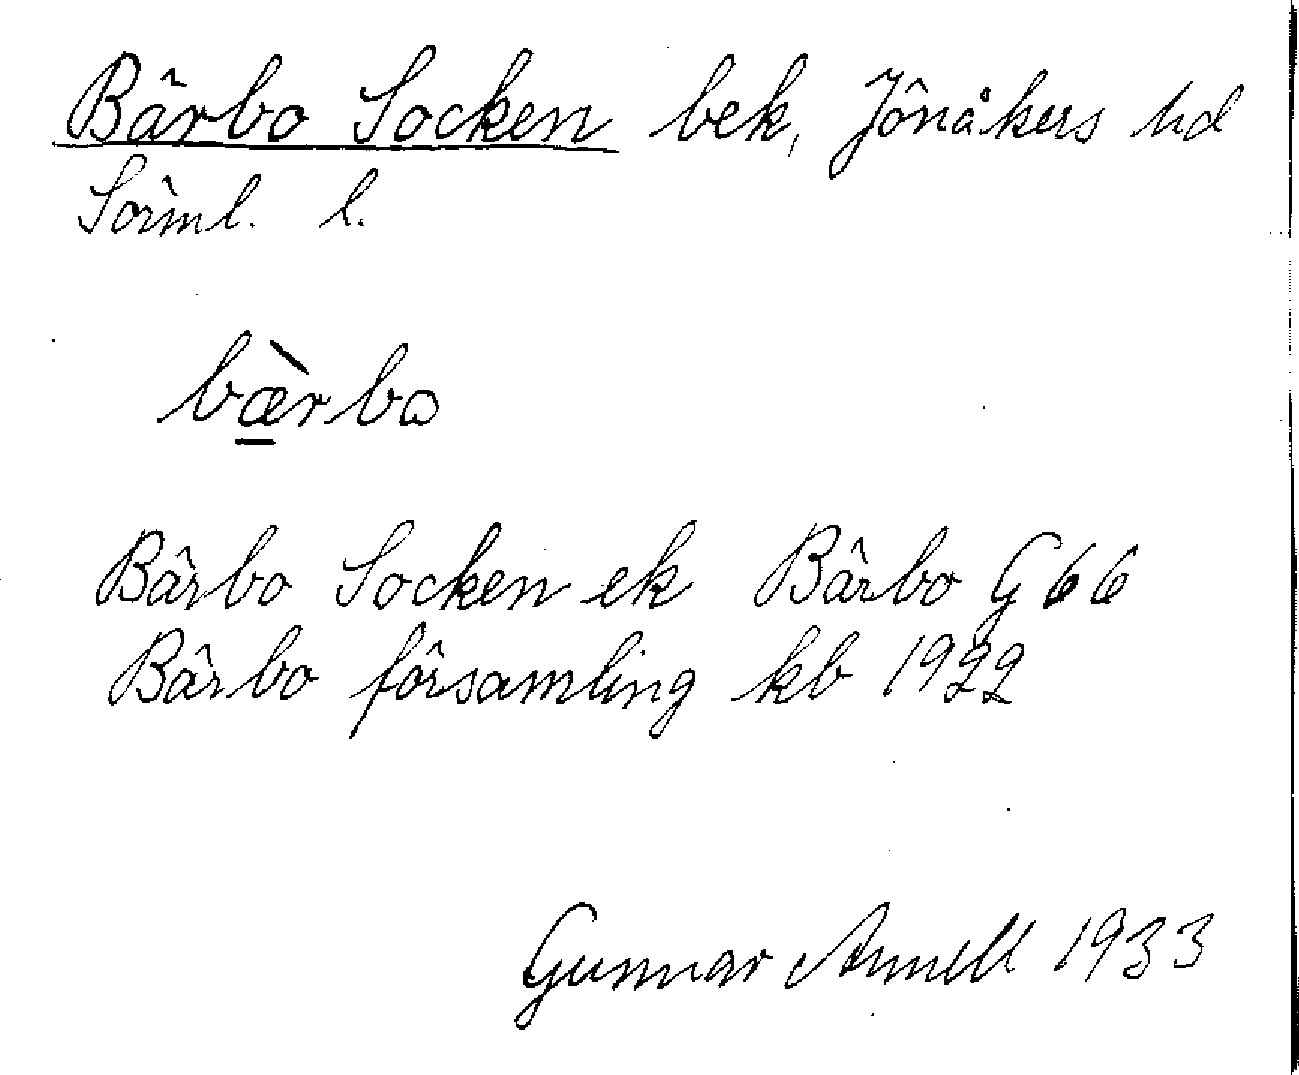 Bärbo Socken bek, Jönåkers hd
Sörml. l.
bæ̠̀rbo
Bärbo Socken ek Bärbo G 66
Bärbo församling kb 1922
Gunnar Annell 1933